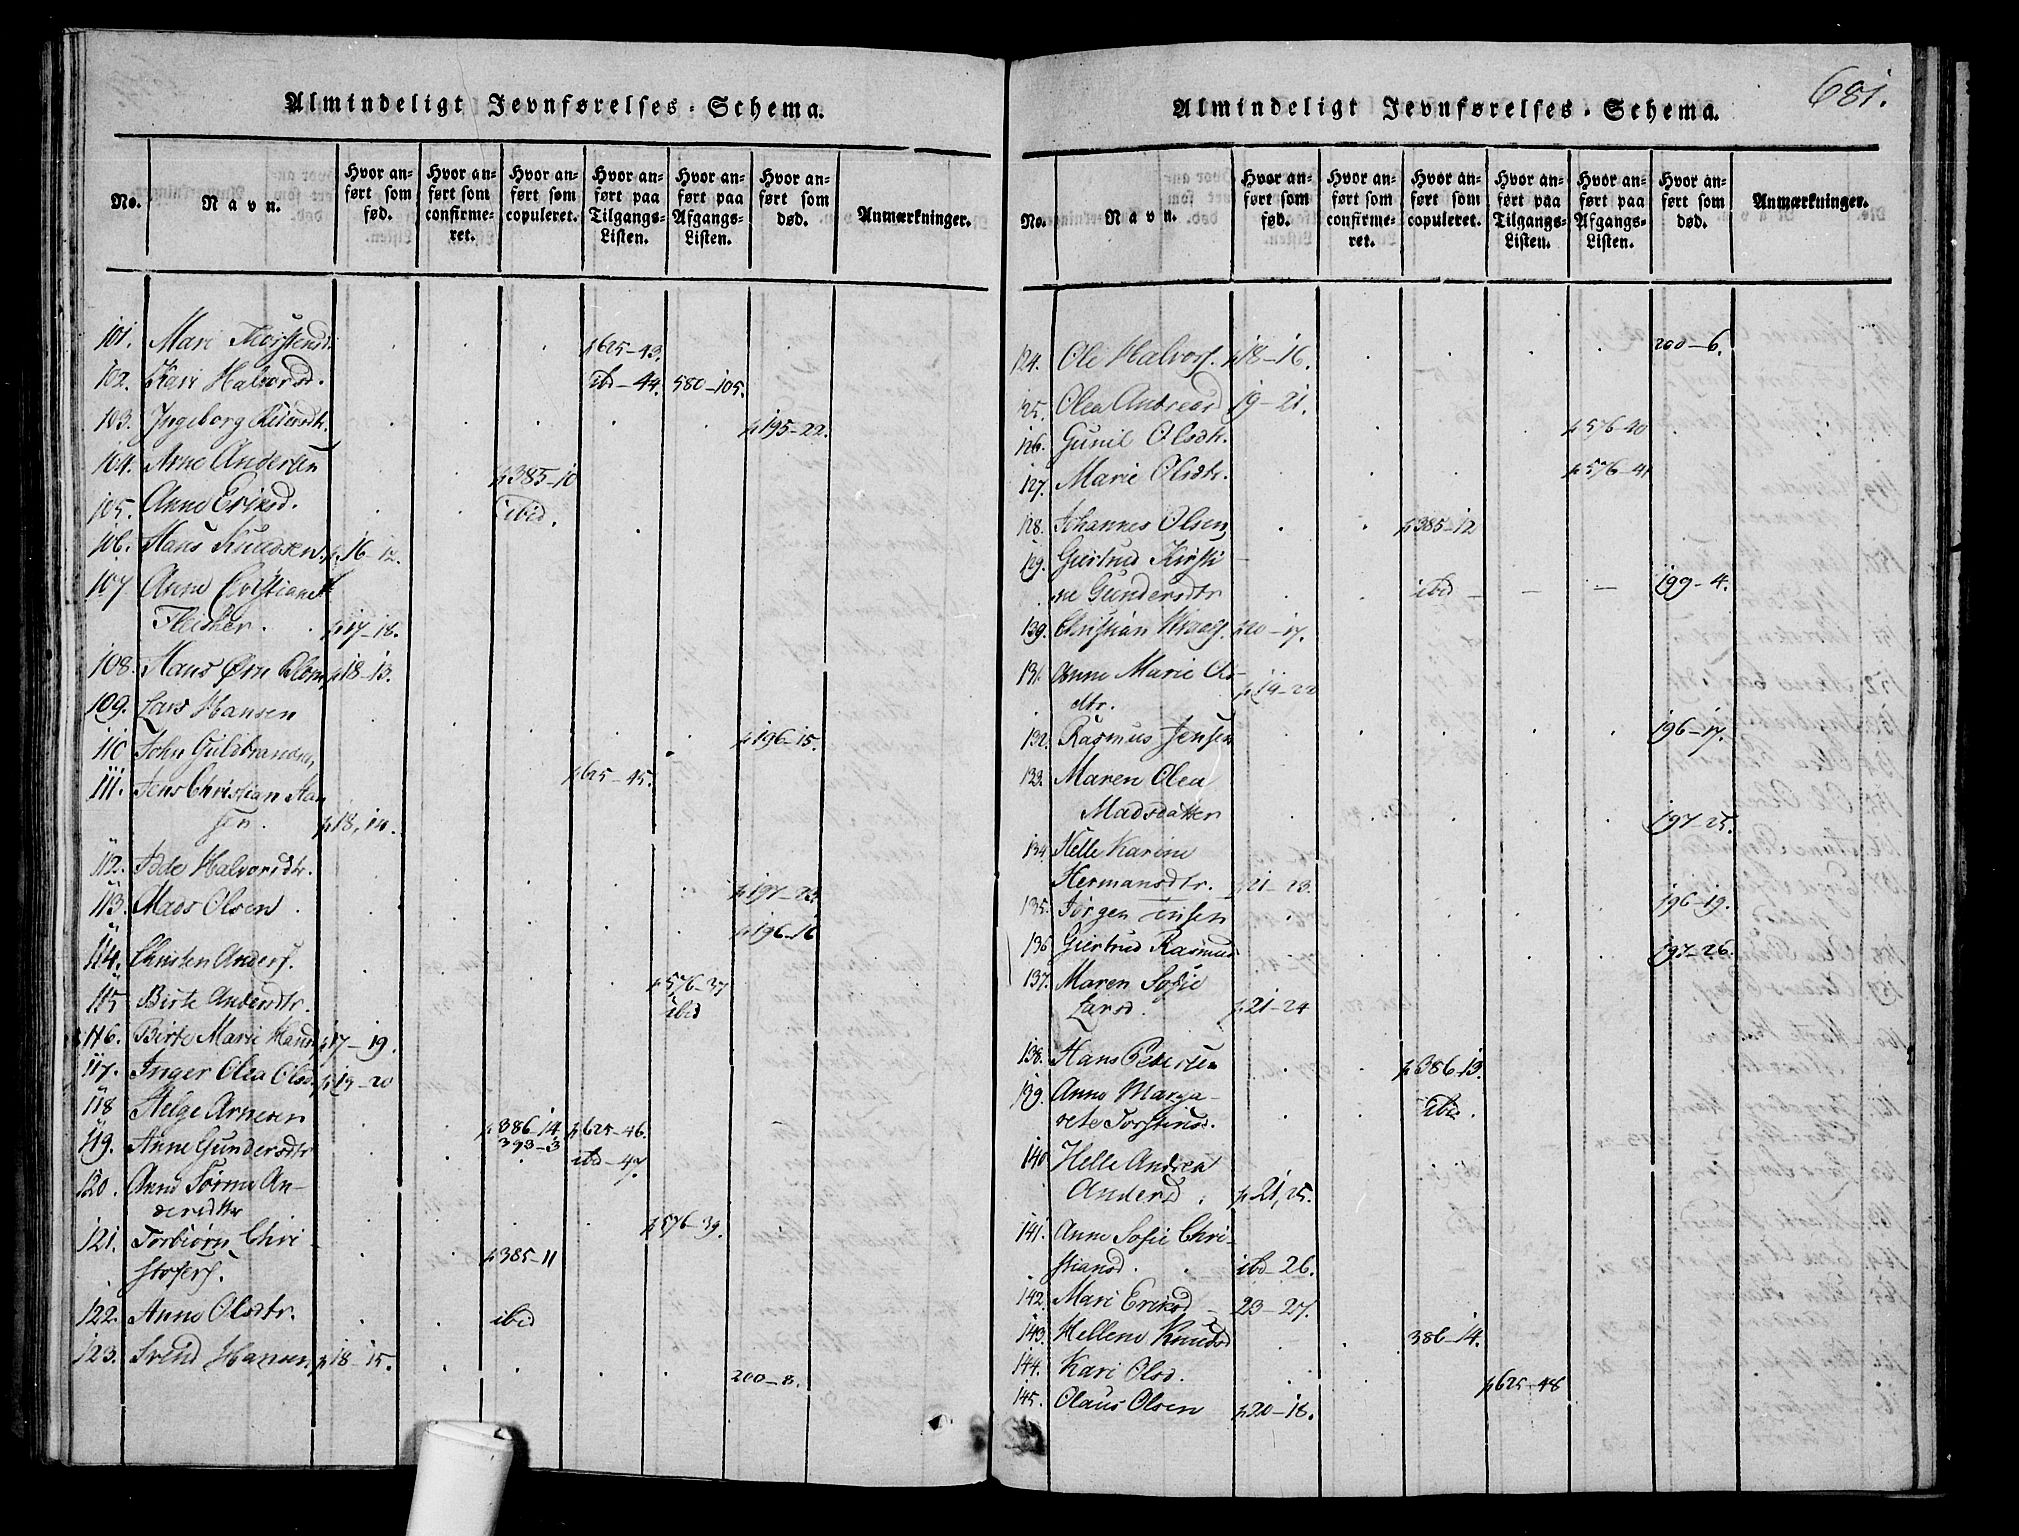 Almindeligt Jevnførelses-Schema.
No. Navn. Hvor anført som fød. Hvor anført som confirmeret. Hvor anført som copuleret. Hvor anført paa Tilgangs-Listen. Hvor anført paa Afgangs-Listen. Hvor anført som død. Anmærkninger.
101. Mari Thorstensd. p625-43.
102. Kari Halvorsd. ibd-44. 580-105.
103. Ingeborg p195-22.
104. Arne Andersen p385-10
105. Anne Eriksd. ibid.
106. Hans Knudsen p.16-12.
107 Anne Christiane
Fleisher. p17-18.
108. Hans Ørn Blom p18-13.
109. Lars Hansen p196-15.
110 John Guldbrandsen p625-45.
111. Jens Christian Han
sen. p18,14.
112. Halvorsdtr. p197-23
113. Mads Olsen p196-16
114. Christen Anders. p576-37
115 Birte Andersdtr. ibid
116. Birte Marie Hansd p17-19.
117. Inger Olea Olsd. p19-20
118 Helge Arnesen p386-14 p625-46.
119. Anne Gundersdtr 393-3 ibd-47.
120. Anne An-
dersdtr p576-39.
121. Torbiørn Chri-
stofers. p385-11
122. Anne Olsdtr. ibid
123. Svend Hansen p18-15. 200-8.
681.
Almindeligt Jevnførelses-Schema.
No. Navn. Hvor anført som fød. Hvor anført som confirmeret. Hvor anført som copuleret. Hvor anført paa Tilgangs-Listen. Hvor anført paa Afgangs-Listen. Hvor anført som død. Anmærkninger.
124. Ole Halvors. p18-16. 200-6.
125. Olea Andreasd 19-21.
126. Gunil Olsdtr. p576-40
127. Marie Olsdtr. p576-41
128. Johannes Olsen p385-12
129. Giertrud Kirsti-
ne Gundersdtr ibid - - - 199-4.
139. Christian p20-17.
131. Anne Marie Ols-
dtr. p19-22
132. Rasmus Jensen 196-17.
133. Maren Olea
Madsdatter 197-25.
134 Helle Karine
Hermansdtr. p21-23.
135. Jørgen Jensen 196-19.
136 Giertrud Rasmusd 197-26.
137. Maren Sofie
Larsd. p21-24
138. Hans Petersen p386-13.
139. Anne Marga-
rete Torstensd. ibid.
140 Helle Andrea
Andersd. p21,25.
141. Anne Sofie Chri-
stiansd. ibd-26.
142. Mari Eriksd - 23-27.
143. Hellene Knudsd 386-14.
144. Kari Olsd. p625-48
145. Olaus Olsen p20-18.